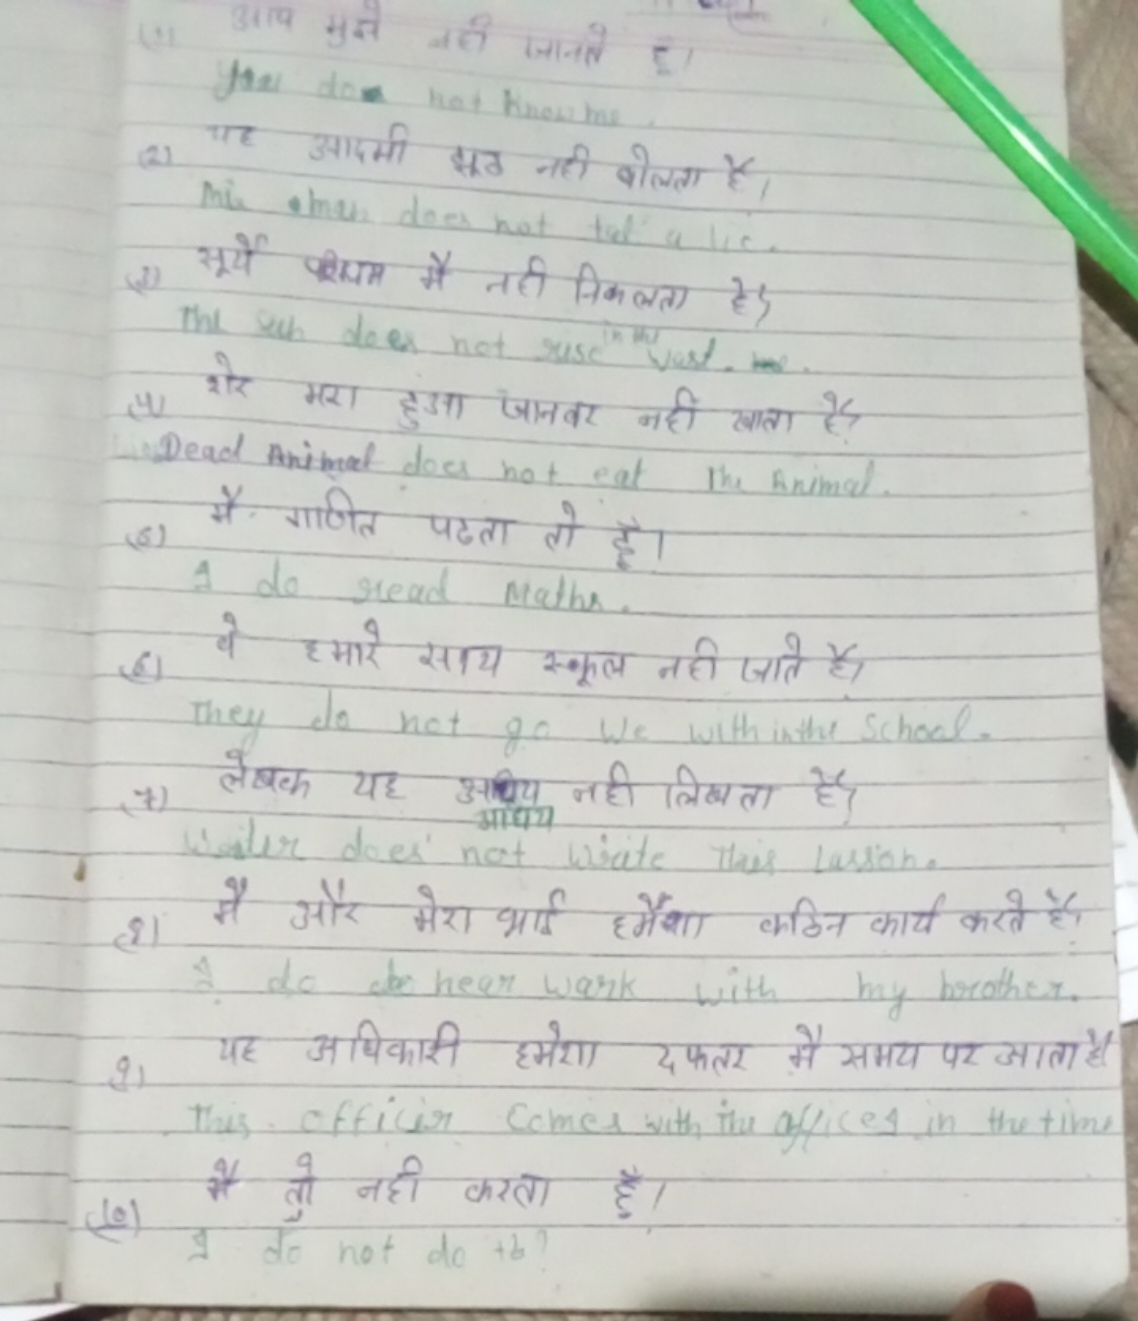 (1) आप मुझे नही जानते है।
You do not know me.
(2) यह आदमी झूठ नही बोलता है।
This man does not tell a lie.
(3) सूर्य पश्चिम मै नही निकलता है।
The sun does not rise in the West.
(4) शेर मरा हुआ जानवर नही खाता है।
Dead Animal does not eat The Animal.
(5) मै गणित पढता तो हूँ।
I do read Maths.
(6) वे हमारे साथ स्कूल नही जाते है।
They do not go We with in the School.
(7) लेखक यह नही लिखता है।
Writer does not Write This Lassion.
(8) मै और मेरा भाई हमेशा कठिन कार्य करते है।
I do hear Wark with my brother.
9) यह अधिकारी हमेशा दफतर मै समय पर आता है।
This officir Comes with the offices in the time
(10) मै तो नही करता हूँ।
I do not do